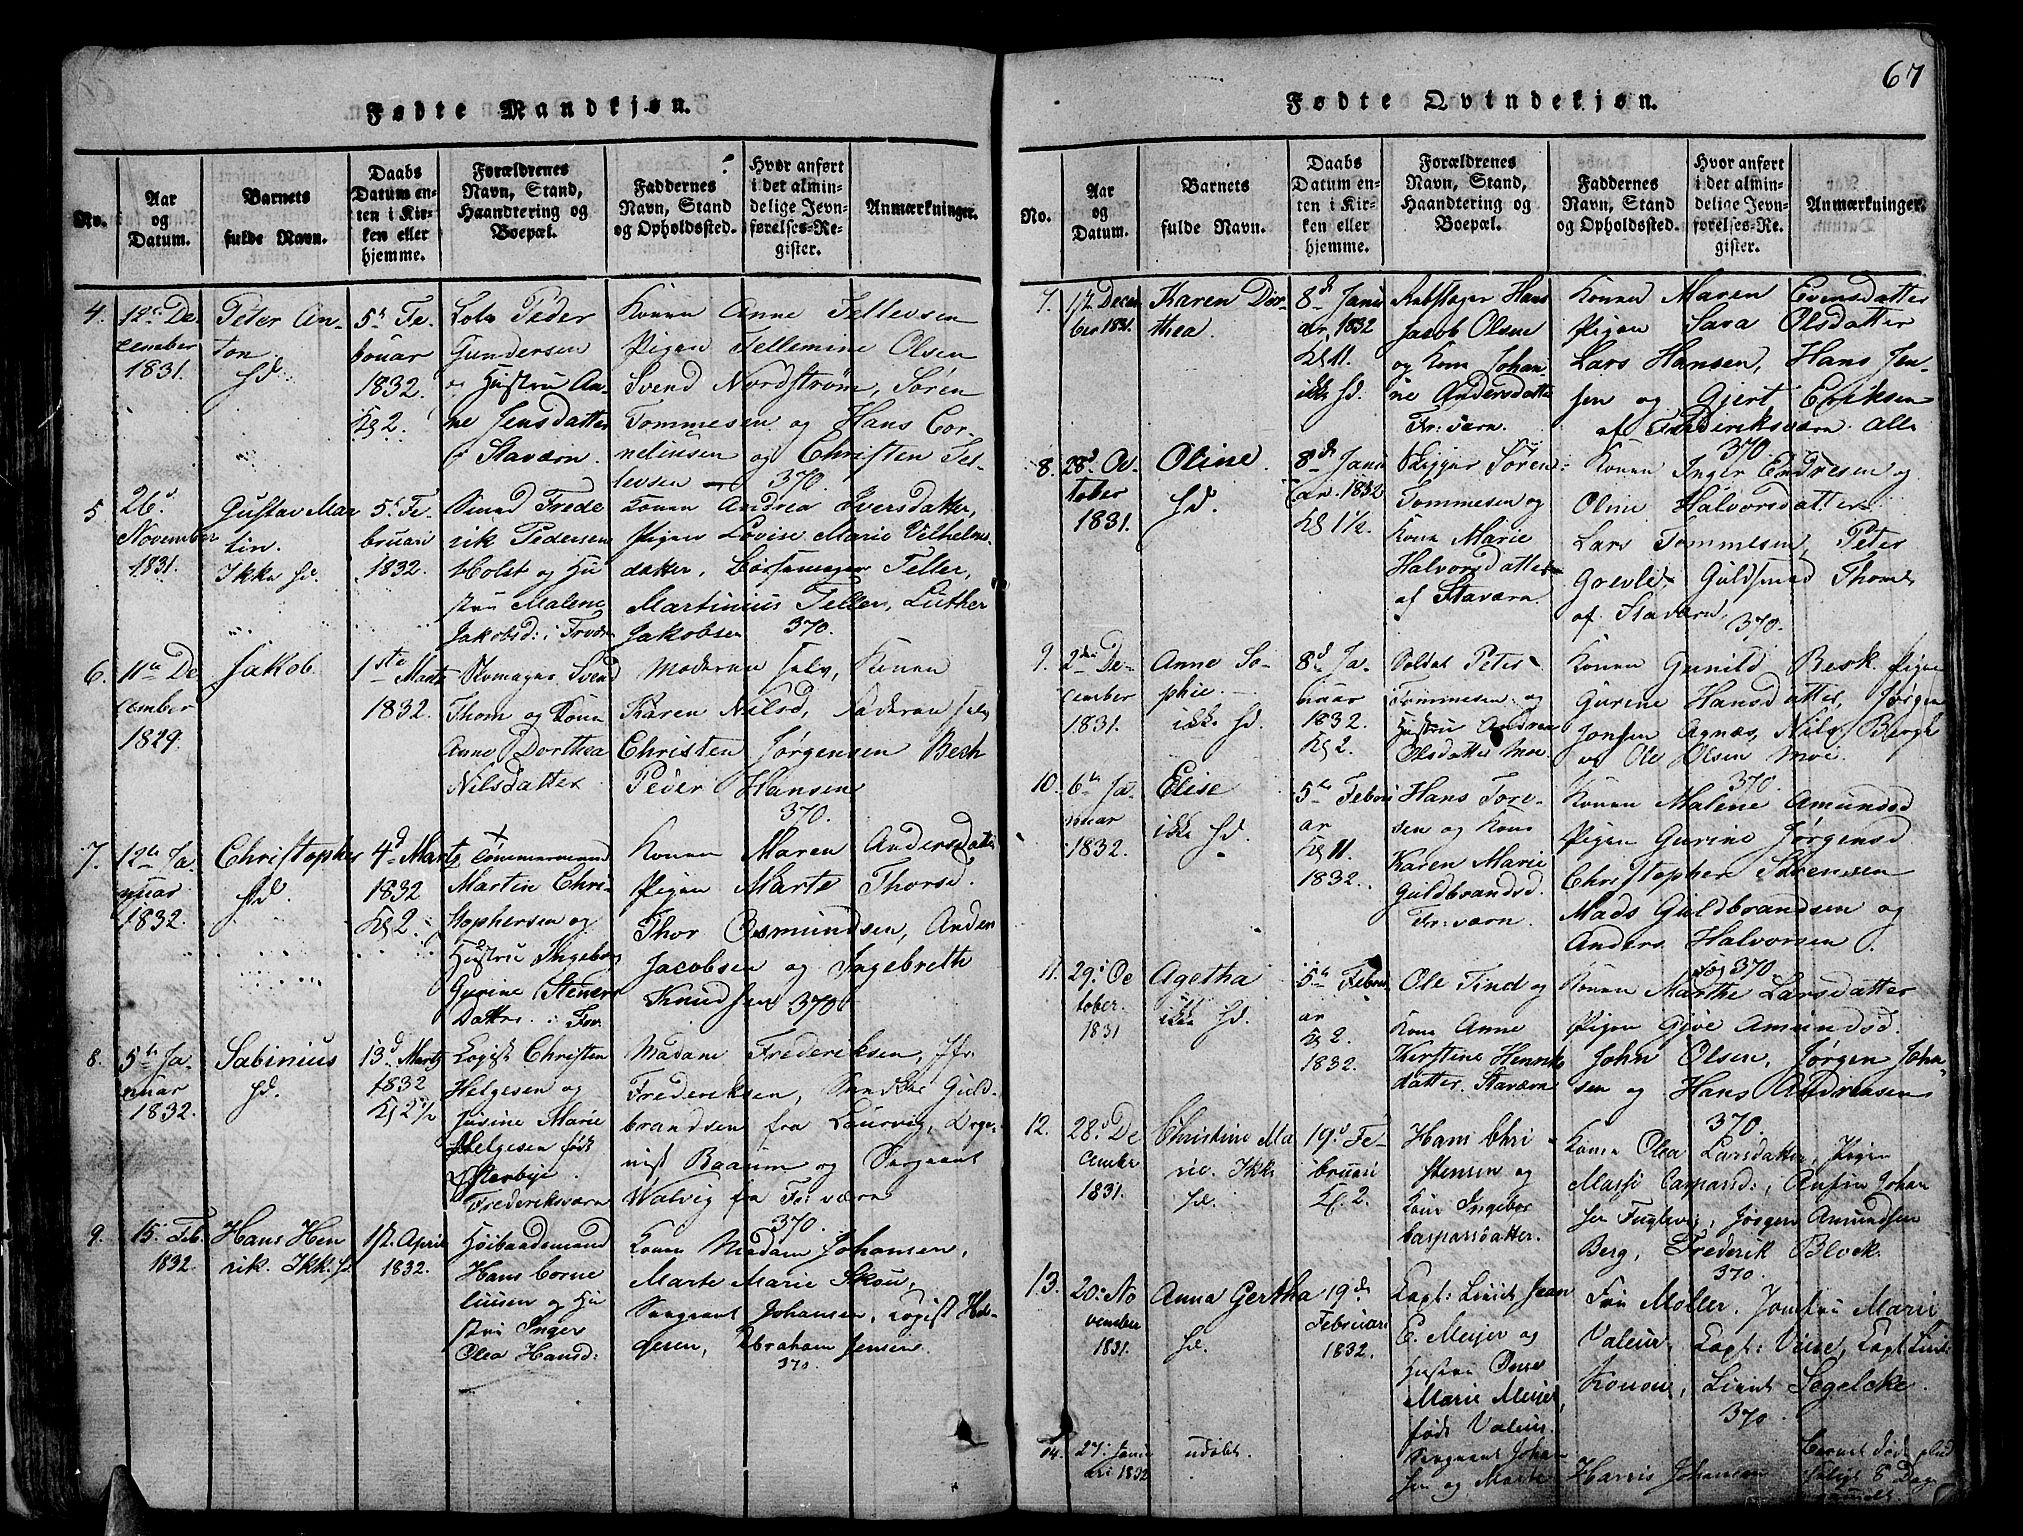 67
Fødte Mandkjøn.
No.
Aar
og
Datum.
Barnets
fulde Navn.
Daabs
Datum en-
ten i Kir-
ken eller
hjemme.
Forældrenes
Navn, Stand,
Haandtering og
Boepæl.
Faddernes
Navn, Stand
og Opholdssted.
Hvor anført
i det almin-
delige Jevn-
førelses-Re-
gister.
Anmærkninger.
4.
12te De-
cember
1831.
Peter An-
ton
hd.
5te Fe-
bruar
1832.
Kl 2.
Peder
Gundersen
og Hustru An-
ne Jensdatter
Staværn.
Konen Anne Tellevsen
Pigen Tellemine Olsen
Svend Nordstrøm, Sören
Tommesen og Hans Cor-
neliusen og Christen Tel-
levsen
370.
5
26d
November
1831.
Gustav Mar
tin.
Ikke hd.
5te Fe-
bruari
1832.
Frede
rik Pedersen
Holst og Hu
stru Malene
Jakobsd:
Konen Andrea Iversdatter,
Pigen Lovise Marie Vilhelms-
datter, Teller,
Martinius Teller, Luther
Jakobsen
370.
6.
11te De
cember
1829.
Jakob.
1ste Martz
1832.
Skomager Svend
Thom og Kone
Anne Dorthea
Nilsdatter
Moderen selv, Konen
Karen Nilsd, Faderen selv
Christen Jørgensen Besk
Peder Hansen
370.
7.
12te Ja
nuar
1832.
Christopher
hd.
4d Martz
1832
Kl 2.
Tømmermand
Martin Chri-
stophersen og
Hustru Ingeborg
Gurine Steners
Datter.
Konen Maren Andersdatter
Pigen Marte Thorsd.
Thor Osmundsen, Anders
Jacobsen og Ingebreth
Knudsen 370.
8.
5te Ja
nuar
1832.
Sabinius
hd.
13d Martz
1832
Kl 2 1/2
Logist Christen
Helgesen og
Marie
Helgesen født
Frederiksværn
Madam Frederiksen, Jfr
Frederiksen, Guld-
brandsen fra Laurvig, Orga-
nist Baaum og Sergeant
Walvig fra Fr:værn
370.
9.
15 Feb.
1832.
Hans Hen
rik. Ikke hd.
1/2. April
1832.
Hans Corne
liusen og Hu
stru Inger
Olea Hansd:
Konen Madam Johansen,
Marte Marie Skou,
Sergeant Johansen, Logist Hel-
gesen, Abraham Jensen
370.
Fødte Qvindekjøn.
No.
Aar
og
Datum.
Barnets
fulde Navn.
Daabs
Datum en-
ten i Kir-
ken eller
hjemme.
Forældrenes
Navn, Stand,
Haandtering og
Boepæl.
Faddernes
Navn, Stand
og Opholdssted.
Hvor anført
i det almin-
delige Jevn-
førelses-Re-
gister.
Anmærkninger.
7.
1/2 Decem
ber 1831.
Karen Dor-
thea.
8d Janu
ar. 1832
Kl 11.
ikke hd.
Rebslager Hans
Jacob Olsen
og Kone Johan-
ne Andersdatter
Fr:værn.
Konen Maren Evensdatter
Pigen Sara Olsdatter
Lars Hansen, Hans Jen-
sen og Gjert Eriksen
af Frederiksværn. Alle
370
8.
28d Oc
tober
1831.
Oline.
hd.
8d Janu
ar. 1832
Kl 1 1/2.
Ligger Sören
Tommesen og
Kone Marie
Halvorsdatter
af Staværn.
Konen Inger Endresen og
Oline Halvorsdatter
Lars Tommesen, Peter
Grevle Guldsmed Thom
af Staværn
370.
9.
2den De-
cember
1831.
Anne So-
phie.
ikke hd.
8d Ja-
nuar
1832.
Kl 2.
Soldat Peter
Tommesen og
Hustru Andrea
Olsdatter Moe
Konen Gunild Besk. Pigen
Gurine Hansdatter, Jørgen
Jonsen Agnæs, Nils Bergh
og Ole Olsen Moe.
370
10.
6te Ja-
nuar
1832.
Elise
ikke hd.
5te Febru
ar
Kl 11.
1832.
Hans Tore-
sen og Kone
Karen Marie
Guldbrandsd.
Fr:værn.
Konen Malene Amundsd
Pigen Gurine Jörgensd.
Christopher Sörensen
Mads Guldbrandsen og
Anders Halvorsen.
370
11.
29. Oc
tober
1831
Agetha
ikke hd.
5te Febru
ar
Kl 2.
1832.
Ole Tind og
Kone Anne
Kirstine Henriks
datter. Staværn
Konen Marthe Larsdatter
Pigen Gjøe Amundsd.
John Olsen, Jörgen Johan-
sen og Hans Andreasen
370.
12.
28d De
cember
1831.
Christine Ma
rie. Ikke
hd.
19d Fe-
bruari
Kl. 2.
Hans Chri
stensen og
Kone Ingebor
Caspersdatter.
Kone Olea Larsdatter, Pigen
Caspersd:, Johan
sen Fuglevig, Jørgen Amundsen
Berg, Frederik Block.
370.
13.
20. No
vember
1831.
Anna Gertha
hd.
19de
Februari
1832.
Capt: Lieut
E. Meijer og
Hustru
Marie Meijer,
født Valeur.
Fru Møller. Jomfru Marie
Valeur, Capt: Capt. Lieut:
Konow, Lieut Segelcke.
370.
14.
27. Janu
ari 1832
udøbt.
Sergeant Johan-
sen og Marte
Harris Johansen
Barnet døde
8 Dage